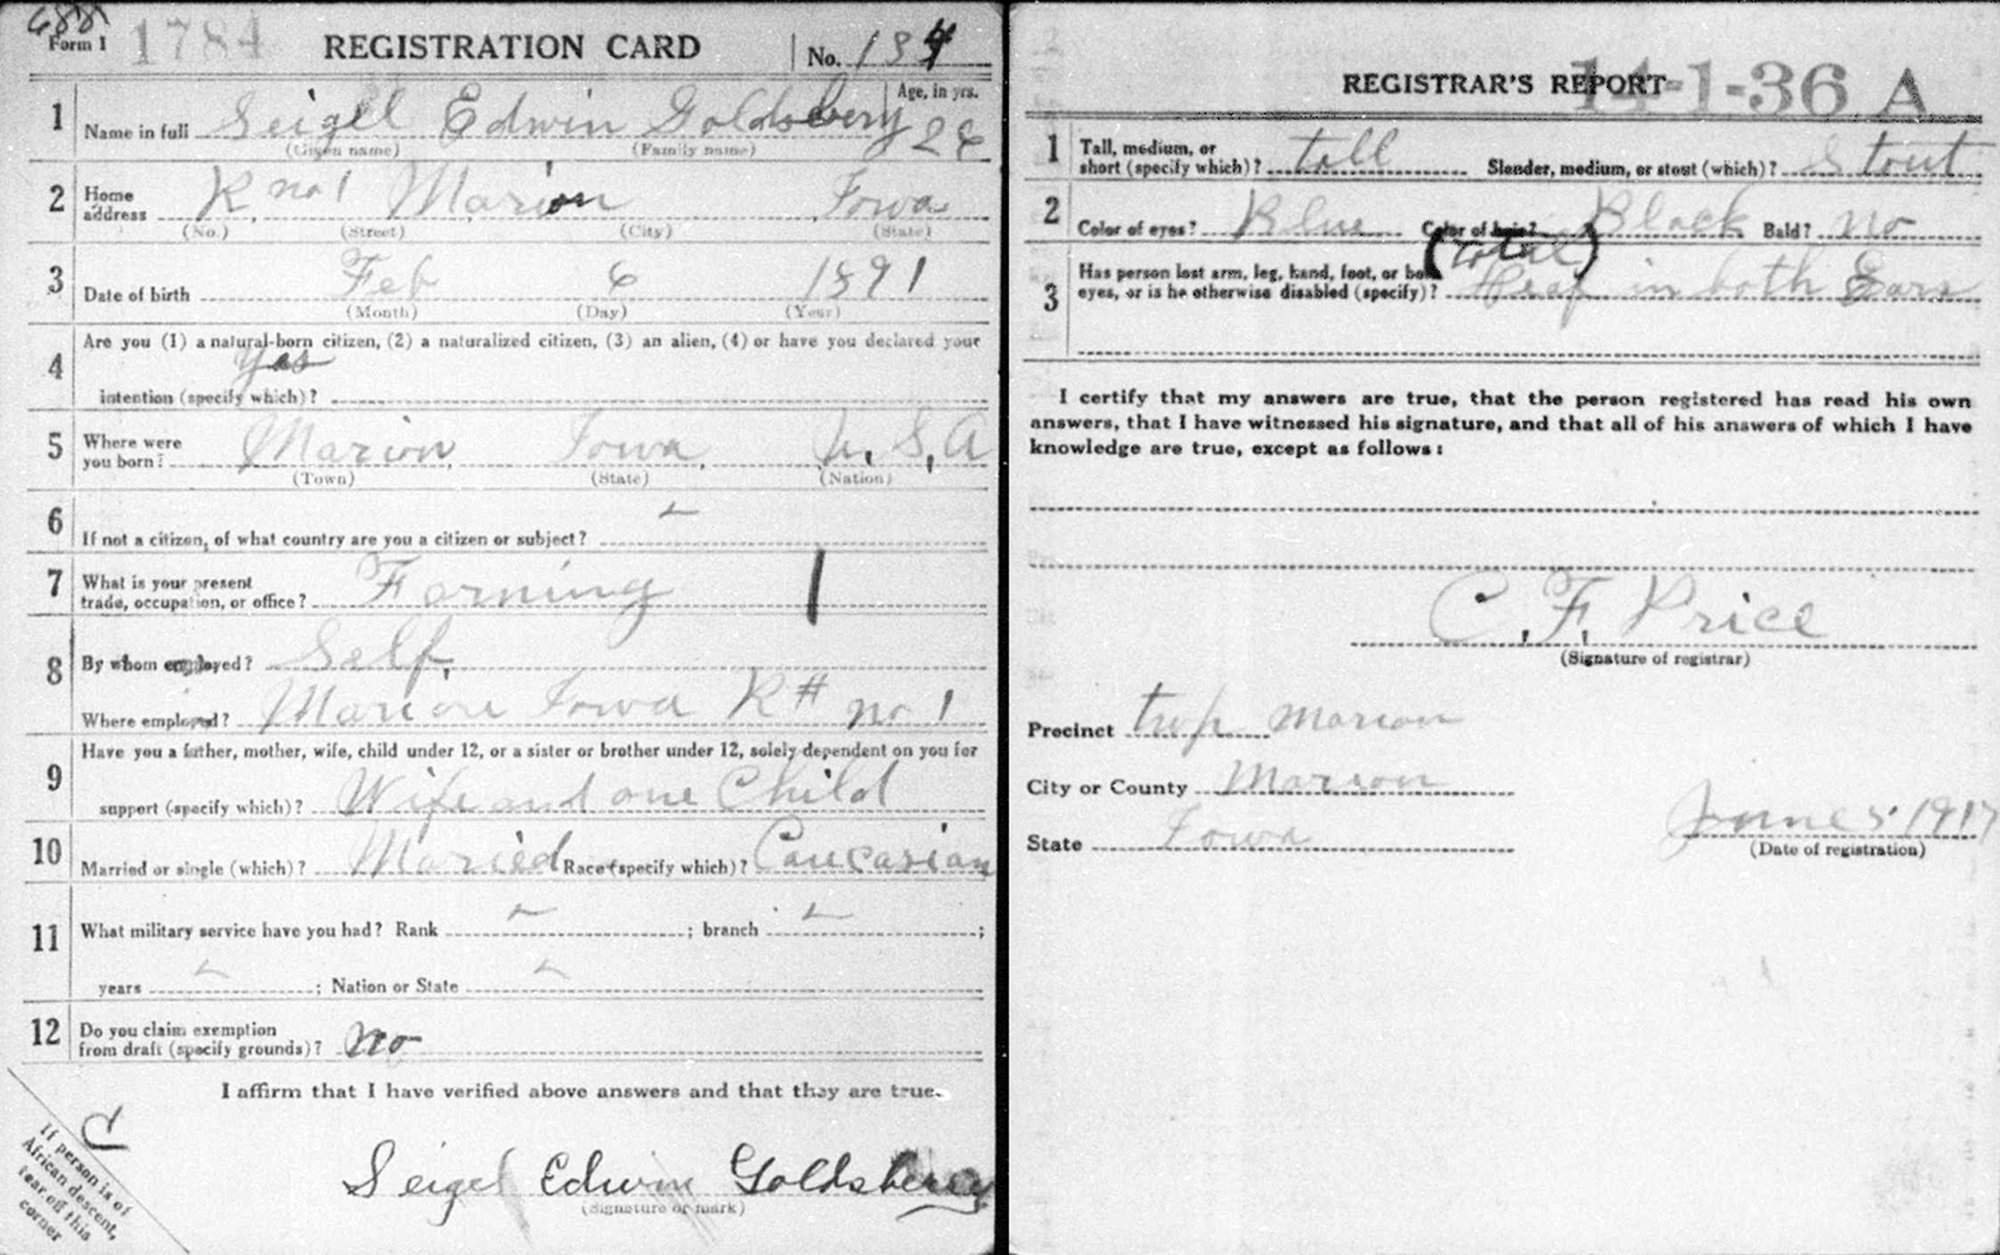 Form 1 1784 REGISTRATION CARD No. 134
1 Name in full Seigel Edwin Goldsberry Age, in yrs. 26
(Given name) (Family name)
2 Home address R no 1 Marion Iowa
(No.) (Street) (City) (State)
3 Date of birth Feb 6 1891
(Month) (Day) (Year)
4 Are you (1) a natural-born citizen, (2) a naturalized citizen, (3) an alien, (4) or have you declared your
Yes
intention (specify which)?
5 Where were you born? Marion, Iowa, U, S, A
(Town) (State) (Nation)
6 If not a citizen, of what country are you a citizen or subject?
7 What is your present trade, occupation, or office? Farming
8 By whom employed? Self,
Where employed? Marion Iowa R# no 1
9 Have you a father, mother, wife, child under 12, or a sister or brother under 12, solely dependent on you for
support (specify which)? Wife and one Child
10 Married or single (which)? Maried Race (specify which)? Caucasian
11 What military service have you had? Rank ; branch ;
years ; Nation or State
12 Do you claim exemption from draft (specify grounds)? no
I affirm that I have verified above answers and that they are true.
Seigel Edwin Goldsberry
(Signature or mark)
If person is of
African descent,
tear off this
corner
REGISTRAR'S REPORT 14-1-36 A
1 Tall, medium, or short (specify which)? tall Slender, medium, or stout (which)? Stout
2 Color of eyes? Blue Color of hair? Black Bald? no
(total)
3 Has person lost arm, leg, hand, foot, or both eyes, or is he otherwise disabled (specify)? Deaf in both Ears
I certify that my answers are true, that the person registered has read his own
answers, that I have witnessed his signature, and that all of his answers of which I have
knowledge are true, except as follows:
C. F. Price
(Signature of registrar)
Precinct twp Marion
City or County Marion
State Iowa June 5 1917
(Date of registration)